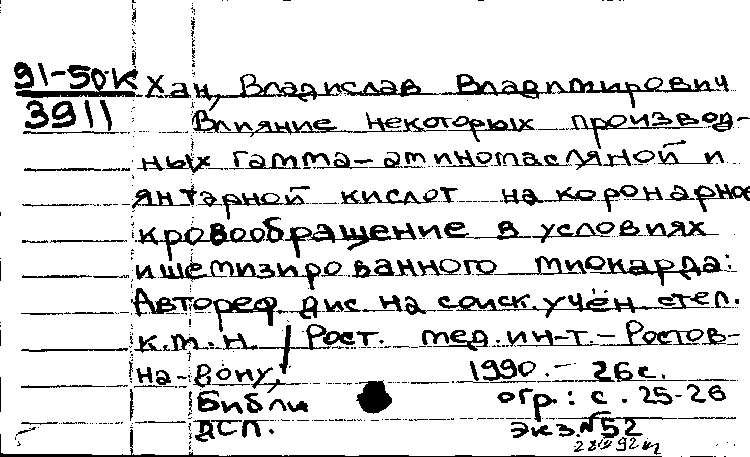 91-50К
3911
Хан, Владислав Владимирович
Влияние некоторых производ-
ных гамма-аминомасляной и
янтарной кислот на коронарное
кровообращение в условиях
ишемизированного миокарда:
Автореф. дис. на соиск. учён. степ.
к.м.н. / Рост. мед. ин-т. - Ростов-
на-Дону, 1990. - 26 с.
Библиогр.: с. 25-26
ДСП. экз. №52